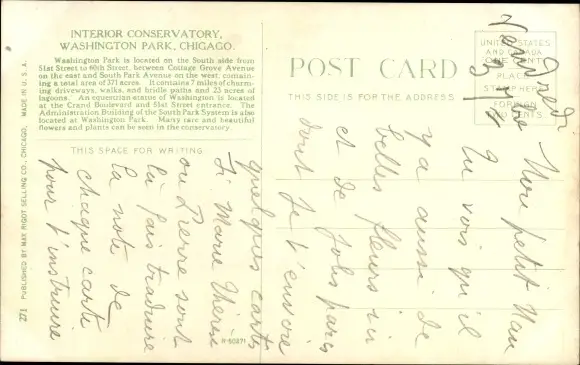 INTERIOR CONSERVATORY,
WASHINGTON PARK, CHICAGO.
Washington Park is located on the South side from
51st Street to 60th Street, between Cottage Grove Avenue
on the east and South Park Avenue on the west, contain-
ing a total area of 371 acres. It contains 7 miles of charm-
ing driveways, walks, and bridle paths and 23 acres of
lagoons. An equestrian statue of Washington is located
at the Grand Boulevard and 51st Street entrance. The
Administration Building of the South Park System is also
located at Washington Park. Many rare and beautiful
flowers and plants can be seen in the conservatory.
THIS SPACE FOR WRITING
POST CARD
THIS SIDE IS FOR THE ADDRESS
UNITED STATES
AND CANADA
ONE CENT
PLACE
STAMP HERE
FOREIGN
TWO CENTS
PUBLISHED BY MAX RIGOT SELLING CO., CHICAGO, MADE IN U. S. A.
121
R-50271
Mon petit
Tu vois qu'il
y a aussi de
belles fleurs ici
et de jolis parcs
dont je t'envoie
quelques cartes
Si Marie Thérèse
ou Pierre sont
là fais traduire
la note de
chaque carte
pour t'instruire